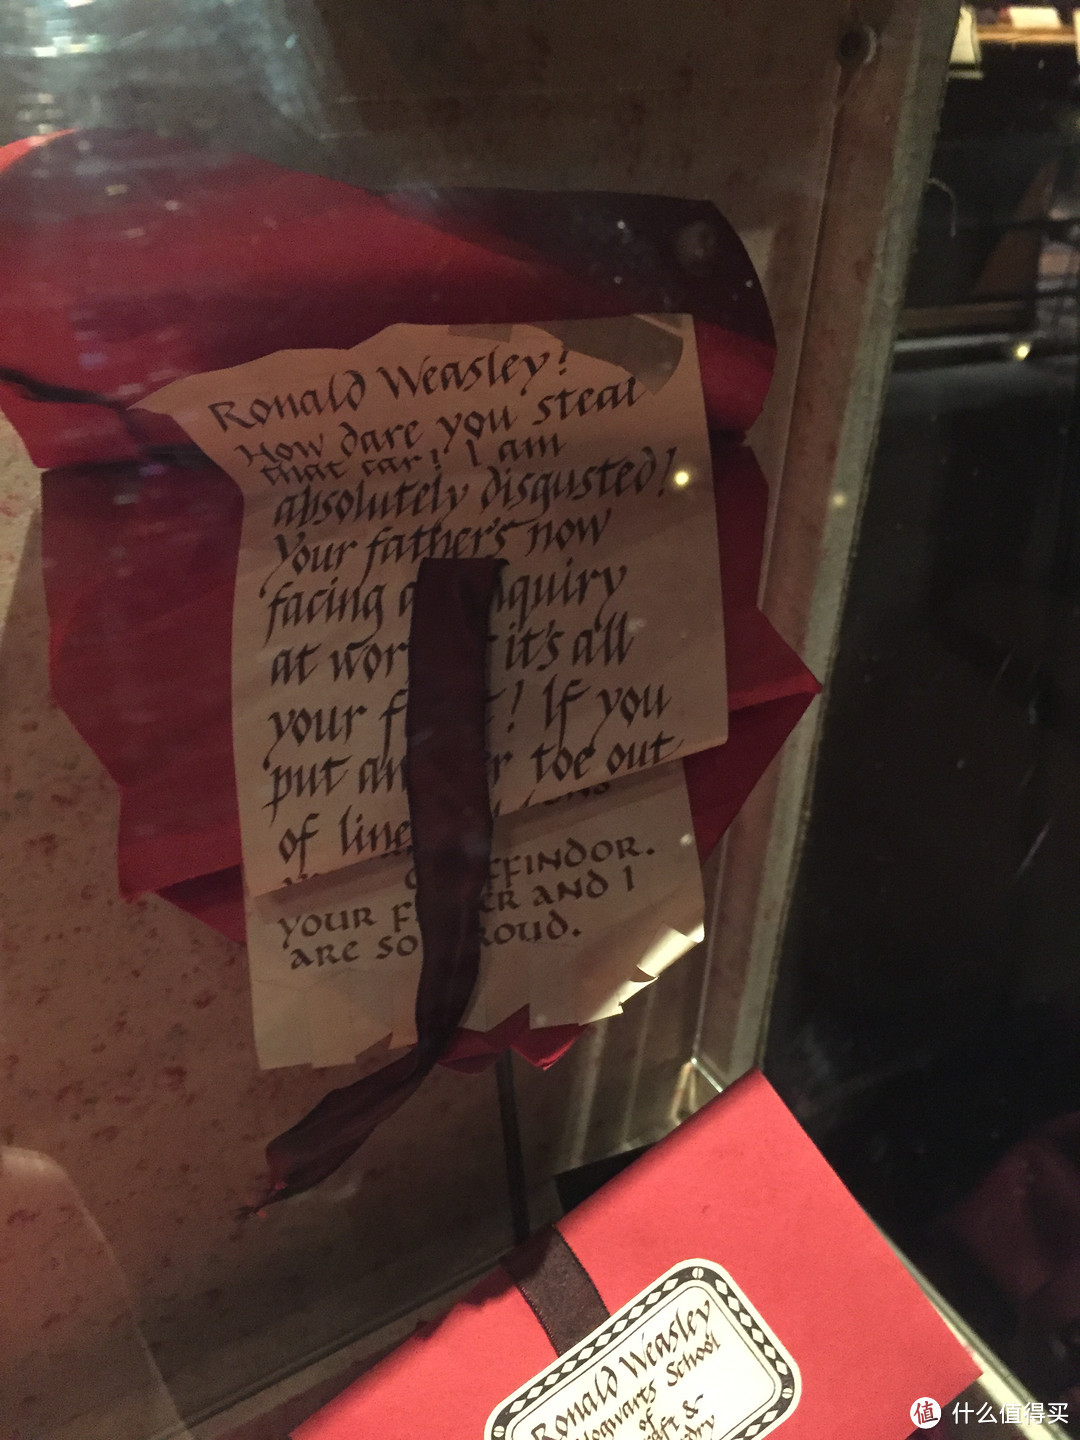 Ronald Weasley!
How dare you steal
that car! I am
absolutely disgusted!
Your father's now
facing quiry
at wor it's all
your f ! If you
put an r toe out
of line
FFINDOR.
YOUR F ER AND I
ARE SO ROUD.
Ronald Weasley
Hogwarts School
of
&
值 什么值得买